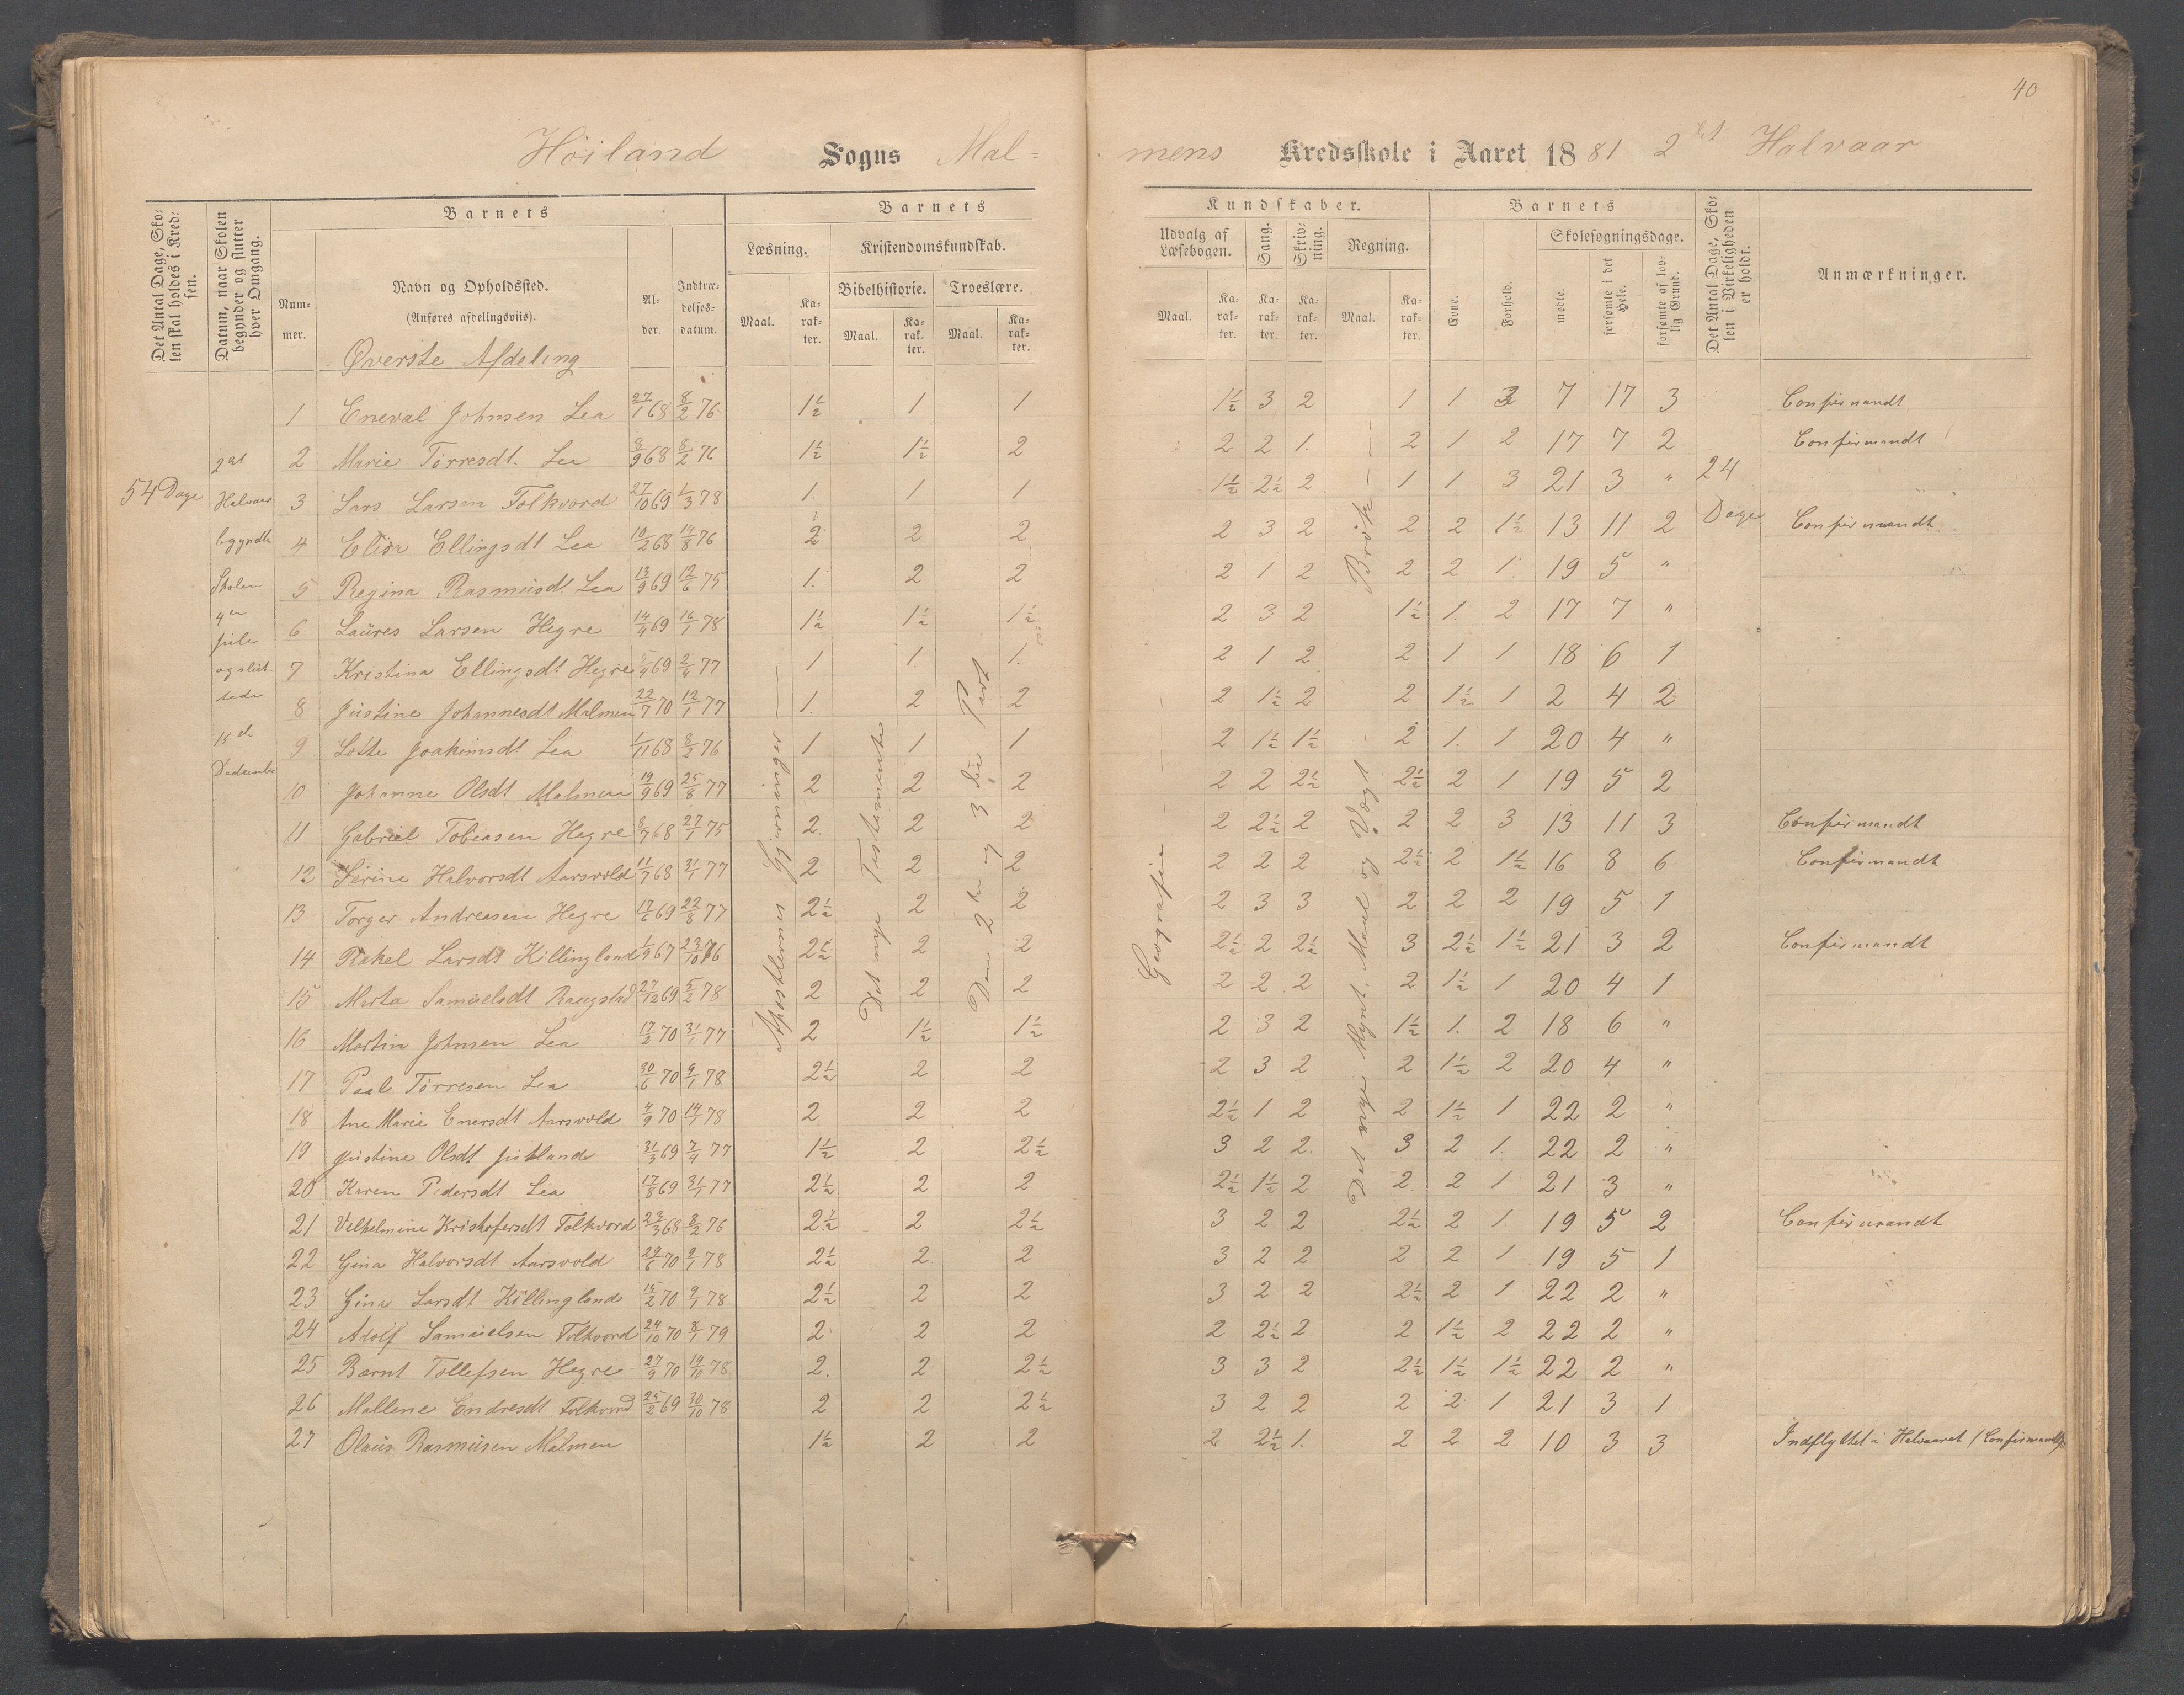 40
Höiland Sogns Mal= mens Kredsskole i Aaret 1881 2det Halvaar
Det Antal Dage, Skolen skal holdes i Kredsen.
Datum, naar Skolen begynder og slutter hver Omgang.
Barnets
Nummer.
Navn og Opholdssted.
(Anføres afdelingsviis).
Alder.
Indtrædelsesdatum.
Barnets Kundskaber.
Læsning. Maal. Karakter.
Kristendomskundskab.
Bibelhistorie. Maal. Karakter.
Troeslære. Maal. Karakter.
Udvalg af Læsebogen. Maal. Karakter.
Sang. Karakter.
Skrivning. Karakter.
Regning. Maal. Karakter.
Barnets
Evne. Forhold.
Skolesøgningsdage.
mødte. forsømte i det Hele. forsømte af lovlig Grund.
Det Antal Dage, Skolen i Virkeligheden er holdt.
Anmærkninger.
Øverste Afdeling
54 Dage
2det Halvaar begyndte Skolen 4de Juli og sluttede 18de
24 Dage
Apostlernes Gjerninger
Det nye Testamente
Den 2den og 3die Part
Geografie
Brök
1 Eneval Johnsen Lea 27/1 68 8/2 76 1½ 1 1 1½ 3 2 1 1 3 7 17 3 Confirmandt
2 Marie Törresdt. Lea 8/9 68 8/2 76 1½ 1½ 2 2 2 1. 2 1 2 17 7 2 Confirmandt
3 Lars Larsen Folkvord 27/10 69 1/3 78 1. 1 1 1½ 2½ 2 1 1 3 21 3 "
4 Elisa Ellingsdt Lea 10/2 68 14/8 76 2 2 2 2 3 2 2 2 1½ 13 11 2 Confirmandt
5 Regina Rasmusdt Lea 13/9 69 12/6 75 1. 2 2 2 1 2 2 2 1 19 5 "
6 Laures Larsen Hegre 14/4 69 16/1 78 1½ 1½ 1½ 2 3 2 1½ 1. 2 17 7 "
7 Kristina Ellingsdt Hegre 5/9 69 2/4 77 1 1. 1. 2 1 2 2 1 1 18 6 1
8 Justine Johannesdt Malmen 22/7 70 12/1 77 1. 2 2 2 1½ 2 2 1½ 1 2 4 2
9 Lotte Joakimsdt Lea 1/11 68 8/2 76 1 1 1 2 1½ 1½ 2 1. 1 20 4 "
10 Johanne Olsdt Malmen 19/9 69 25/8 77 2 2 2 2 2 2½ 2½ 2 1 19 5 2
11 Gabriel Tobiasen Hegre 8/7 68 27/1 75 2. 2 2 2 2½ 2 2 2 3 13 11 3 Confirmandt
12 Serine Halvorsdt Aarsvold 11/7 68 31/1 77 2 2 2 2 2 2 2½ 2 1½ 16 8 6 Confirmandt
13 Torger Andreasen Hegre 17/6 69 22/8 77 2½ 2 2 2 3 3 2 2 2 19 5 1
14 Rakel Larsdt Killingland 1/9 67 23/10 76 2½ 2 2 2½ 2 2½ 3 2½ 1½ 21 3 2 Confirmandt
15 Marta Samuelsdt Raugstad 27/12 69 5/2 78 2 2 2 2 2 2 2 1½ 1 20 4 1
16 Martin Johnsen Lea 17/2 70 31/1 77 2 1½ 1½ 2 3 2 1½ 1. 2 18 6 "
17 Paal Törresen Lea 30/6 70 9/1 78 2½ 2 2 2 3 2 2 1½ 2 20 4 "
18 Ane Marie Enersdt Aarsvold 4/9 70 14/1 78 2 2 2 2½ 1 2 2 1½ 1 22 2 "
19 Justine Olsdt 31/3 69 7/4 77 1½ 2 2½ 3 2 2 3 2 1. 22 2 "
20 Karen Pedersdt Lea 17/8 69 31/1 77 2½ 2 2 2½ 1½ 2 2 2 1 21 3 "
21 Velhelmine Kristofersdt Folkvord 23/3 68 8/2 76 2½ 2 2½ 3 2 2 2½ 2 1 19 5 2 Confirmandt
22 Gina Halvorsdt Aarsvold 29/6 70 9/1 78 2½ 2 2 3 2 2 2 2 1 19 5 1
23 Gina Larsdt Killingland 15/2 70 9/1 78 2½ 2 2 3 2 2 2½ 2 1 22 2 "
24 Adolf Samuelsen Folkvord 24/10 70 8/1 79 2 2 2 2 2½ 2 2 1½ 2 22 2 "
25 Barnt Tollefsen Hegre 27/9 70 19/10 78 2. 2 2½ 3 3 2 2½ 1½ 1½ 22 2 "
26 Mallene Endresdt Folkvord 25/2 69 30/10 78 2 2 2½ 3 2 2 2 2 1 21 3 1
27 Olaus Rasmusen Malmen 1½ 2 2 2 2½ 1. 2 2 2 10 3 3 Indflyttet i Halvaaret (Confirmandt)